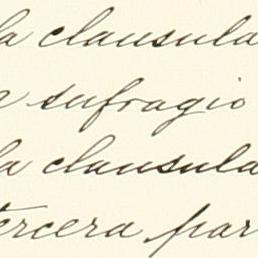 la clausula
sufragio
la clausula
tercera par